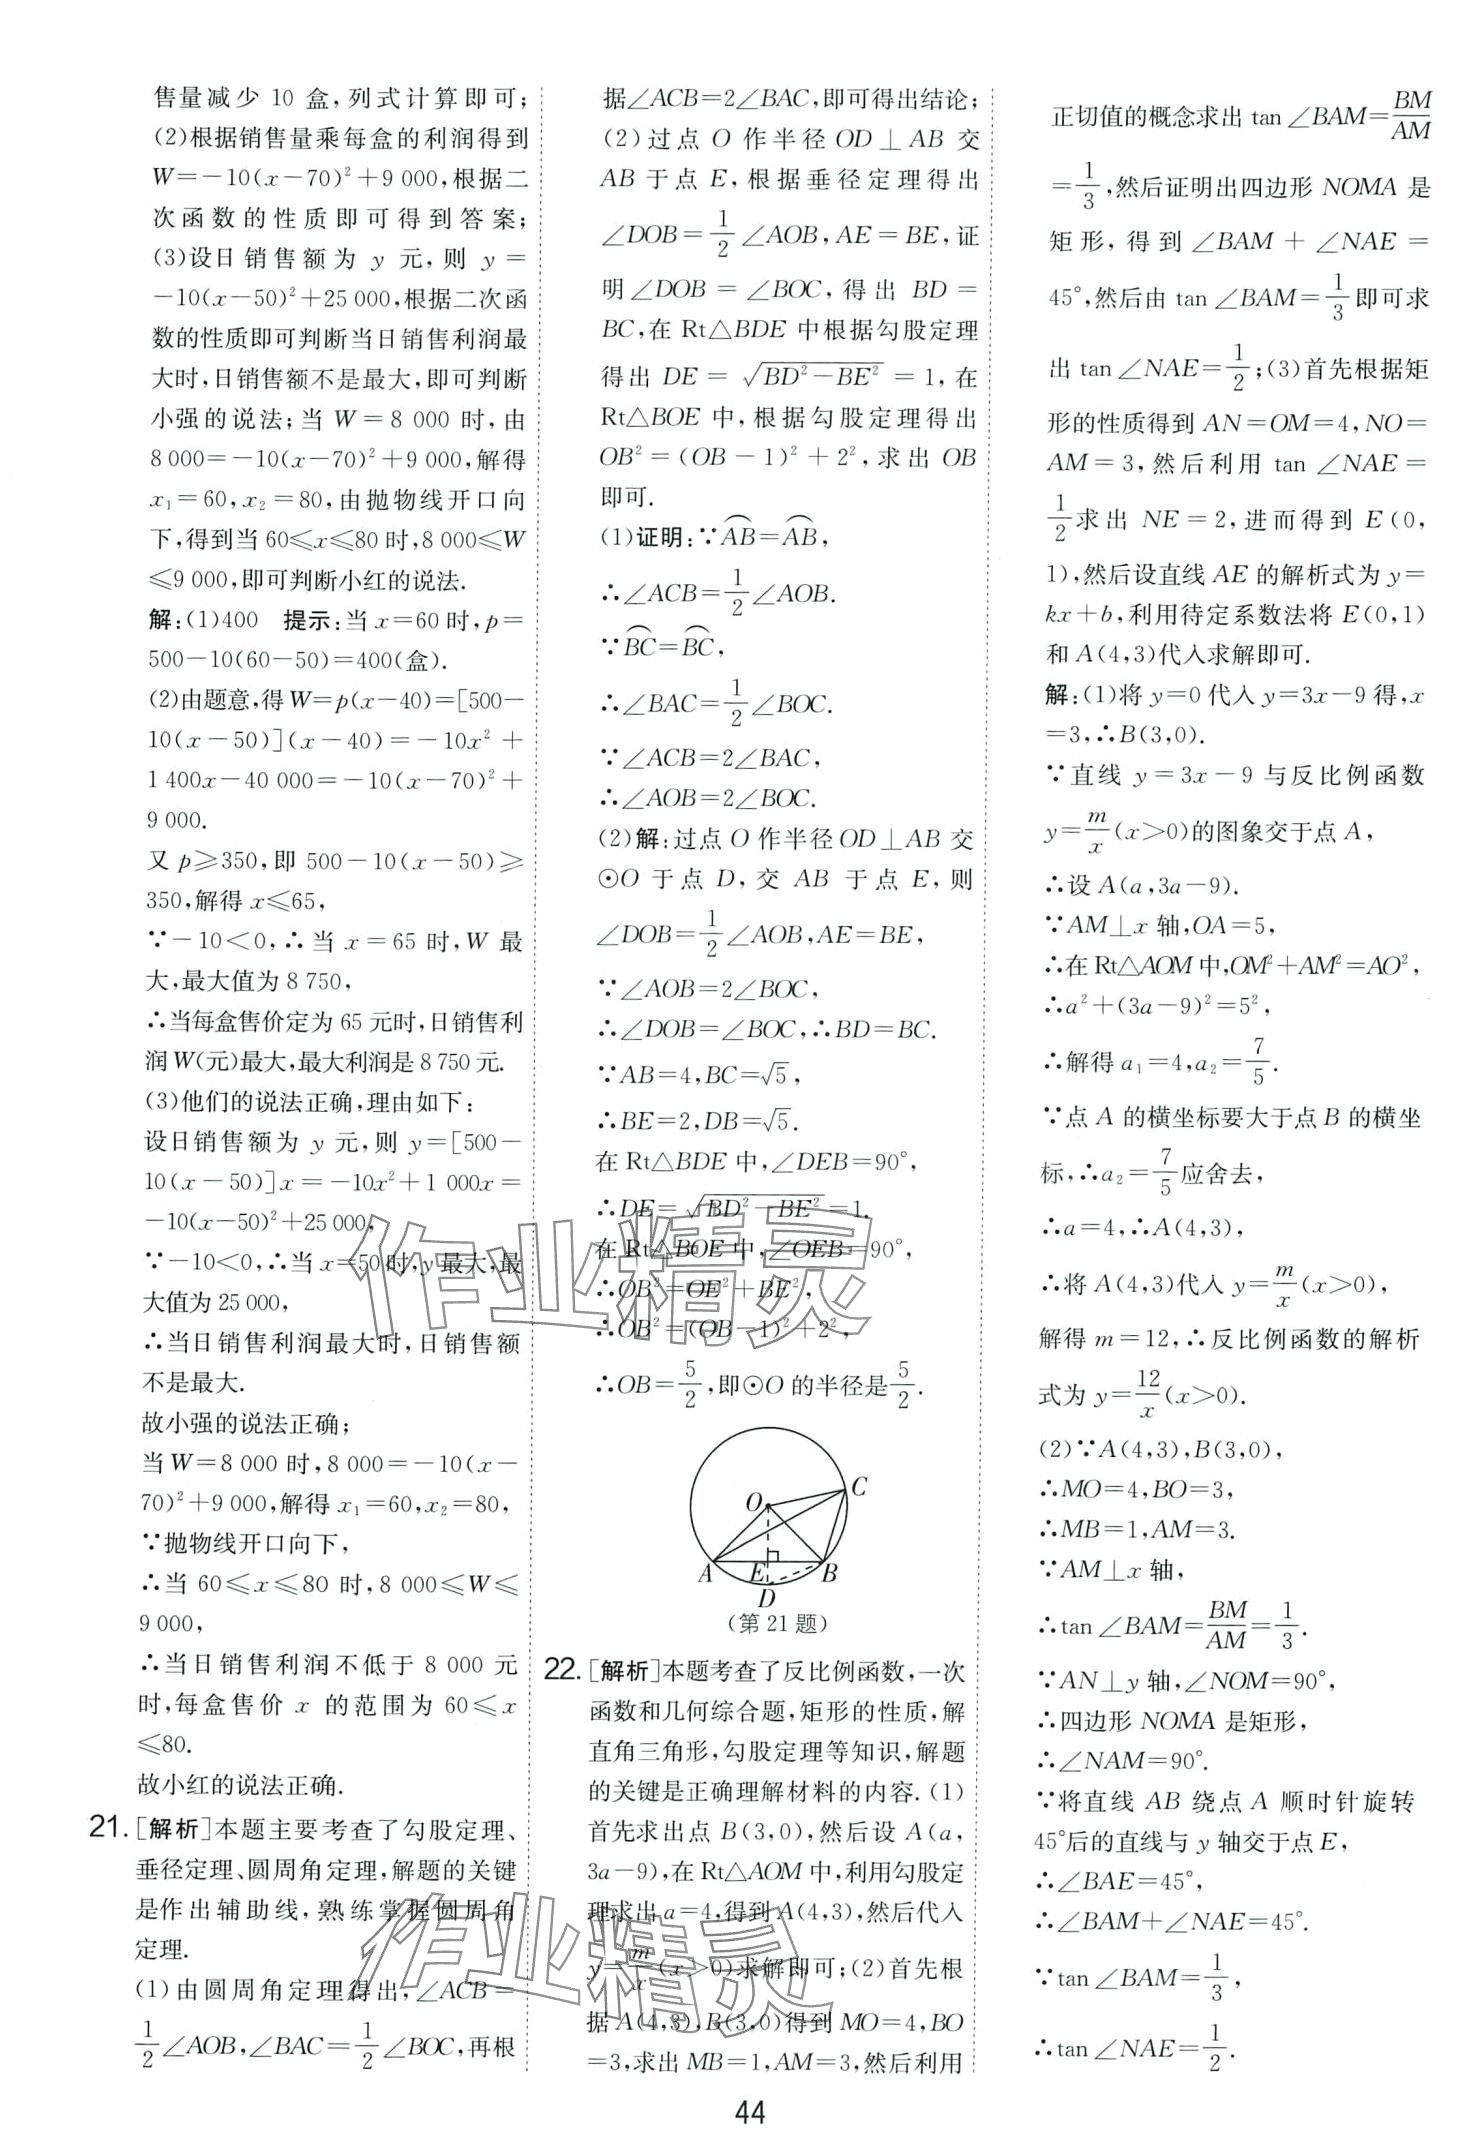 售量减少 10 盒,列式计算即可;
(2)根据销售量乘每盒的利润得到
W=-10(x-70)²+9 000,根据二
次函数的性质即可得到答案;
(3)设日销售额为 y 元,则 y=
-10(x-50)²+25 000,根据二次函
数的性质即可判断当日销售利润最
大时,日销售额不是最大,即可判断
小强的说法;当 W=8 000 时,由
8 000=-10(x-70)²+9 000,解得
x₁=60,x₂=80,由抛物线开口向
下,得到当 60≤x≤80 时,8 000≤W
≤9 000,即可判断小红的说法.
解:(1)400 提示:当 x=60 时,p=
500-10(60-50)=400(盒).
(2)由题意,得 W=p(x-40)=[500-
10(x-50)](x-40)=-10x²+
1 400x-40 000=-10(x-70)²+
9 000.
又 p≥350,即 500-10(x-50)≥
350,解得 x≤65,
∵-10<0,∴当 x=65 时,W 最
大,最大值为 8 750,
∴当每盒售价定为 65 元时,日销售利
润 W(元)最大,最大利润是 8 750 元.
(3)他们的说法正确,理由如下:
设日销售额为 y 元,则 y=[500-
10(x-50)]x=-10x²+1 000x=
-10(x-50)²+25 000,
∵-10<0,∴当 x=50 时,y 最大,最
大值为 25 000,
∴当日销售利润最大时,日销售额
不是最大.
故小强的说法正确;
当 W=8 000 时,8 000=-10(x-
70)²+9 000,解得 x₁=60,x₂=80,
∵抛物线开口向下,
∴当 60≤x≤80 时,8 000≤W≤
9 000,
∴当日销售利润不低于 8 000 元
时,每盒售价 x 的范围为 60≤x
≤80.
故小红的说法正确.
21. [解析]本题主要考查了勾股定理、
垂径定理、圆周角定理,解题的关键
是作出辅助线,熟练掌握圆周角
定理.
(1)由圆周角定理得出,∠ACB=
1/2∠AOB,∠BAC=1/2∠BOC,再根
据∠ACB=2∠BAC,即可得出结论;
(2)过点 O 作半径 OD⊥AB 交
AB 于点 E,根据垂径定理得出
∠DOB=1/2∠AOB,AE=BE,证
明∠DOB=∠BOC,得出 BD=
BC,在 Rt△BDE 中根据勾股定理
得出 DE=√(BD²-BE²)=1,在
Rt△BOE 中,根据勾股定理得出
OB²=(OB-1)²+2²,求出 OB
即可.
(1)证明:∵⌒AB=⌒AB,
∴∠ACB=1/2∠AOB.
∵⌒BC=⌒BC,
∴∠BAC=1/2∠BOC.
∵∠ACB=2∠BAC,
∴∠AOB=2∠BOC.
(2)解:过点 O 作半径 OD⊥AB 交
⊙O 于点 D,交 AB 于点 E,则
∠DOB=1/2∠AOB,AE=BE,
∵∠AOB=2∠BOC,
∴∠DOB=∠BOC,∴BD=BC.
∵AB=4,BC=√5,
∴BE=2,DB=√5.
在 Rt△BDE 中,∠DEB=90°,
∴DE=√(BD²-BE²)=1.
在 Rt△BOE 中,∠OEB=90°,
∴OB²=OE²+BE²,
∴OB²=(OB-1)²+2²,
∴OB=5/2,即⊙O 的半径是5/2.
O
C
A
E
B
D
(第 21 题)
22. [解析]本题考查了反比例函数,一次
函数和几何综合题,矩形的性质,解
直角三角形,勾股定理等知识,解题
的关键是正确理解材料的内容.(1)
首先求出点 B(3,0),然后设 A(a,
3a-9),在 Rt△AOM 中,利用勾股定
理求出 a=4,得到 A(4,3),然后代入
y=m/x(x>0)求解即可;(2)首先根
据 A(4,3),B(3,0)得到 MO=4,BO
=3,求出 MB=1,AM=3,然后利用
正切值的概念求出 tan∠BAM=BM/AM
=1/3,然后证明出四边形 NOMA 是
矩形,得到 ∠BAM+∠NAE=
45°,然后由 tan∠BAM=1/3即可求
出 tan∠NAE=1/2;(3)首先根据矩
形的性质得到 AN=OM=4,NO=
AM=3,然后利用 tan∠NAE=
1/2求出 NE=2,进而得到 E(0,
1),然后设直线 AE 的解析式为 y=
kx+b,利用待定系数法将 E(0,1)
和 A(4,3)代入求解即可.
解:(1)将 y=0 代入 y=3x-9 得,x
=3,∴B(3,0).
∵直线 y=3x-9 与反比例函数
y=m/x(x>0)的图象交于点 A,
∴设 A(a,3a-9).
∵AM⊥x 轴,OA=5,
∴在 Rt△AOM 中,OM²+AM²=AO²,
∴a²+(3a-9)²=5²,
∴解得 a₁=4,a₂=7/5.
∵点 A 的横坐标要大于点 B 的横坐
标,∴a₂=7/5应舍去,
∴a=4,∴A(4,3),
∴将 A(4,3)代入 y=m/x(x>0),
解得 m=12,∴反比例函数的解析
式为 y=12/x(x>0).
(2)∵A(4,3),B(3,0),
∴MO=4,BO=3,
∴MB=1,AM=3.
∵AM⊥x 轴,
∴tan∠BAM=BM/AM=1/3.
∵AN⊥y 轴,∠NOM=90°,
∴四边形 NOMA 是矩形,
∴∠NAM=90°.
∵将直线 AB 绕点 A 顺时针旋转
45°后的直线与 y 轴交于点 E,
∴∠BAE=45°,
∴∠BAM+∠NAE=45°.
∵tan∠BAM=1/3,
∴tan∠NAE=1/2.
44
作业精灵
作业精灵